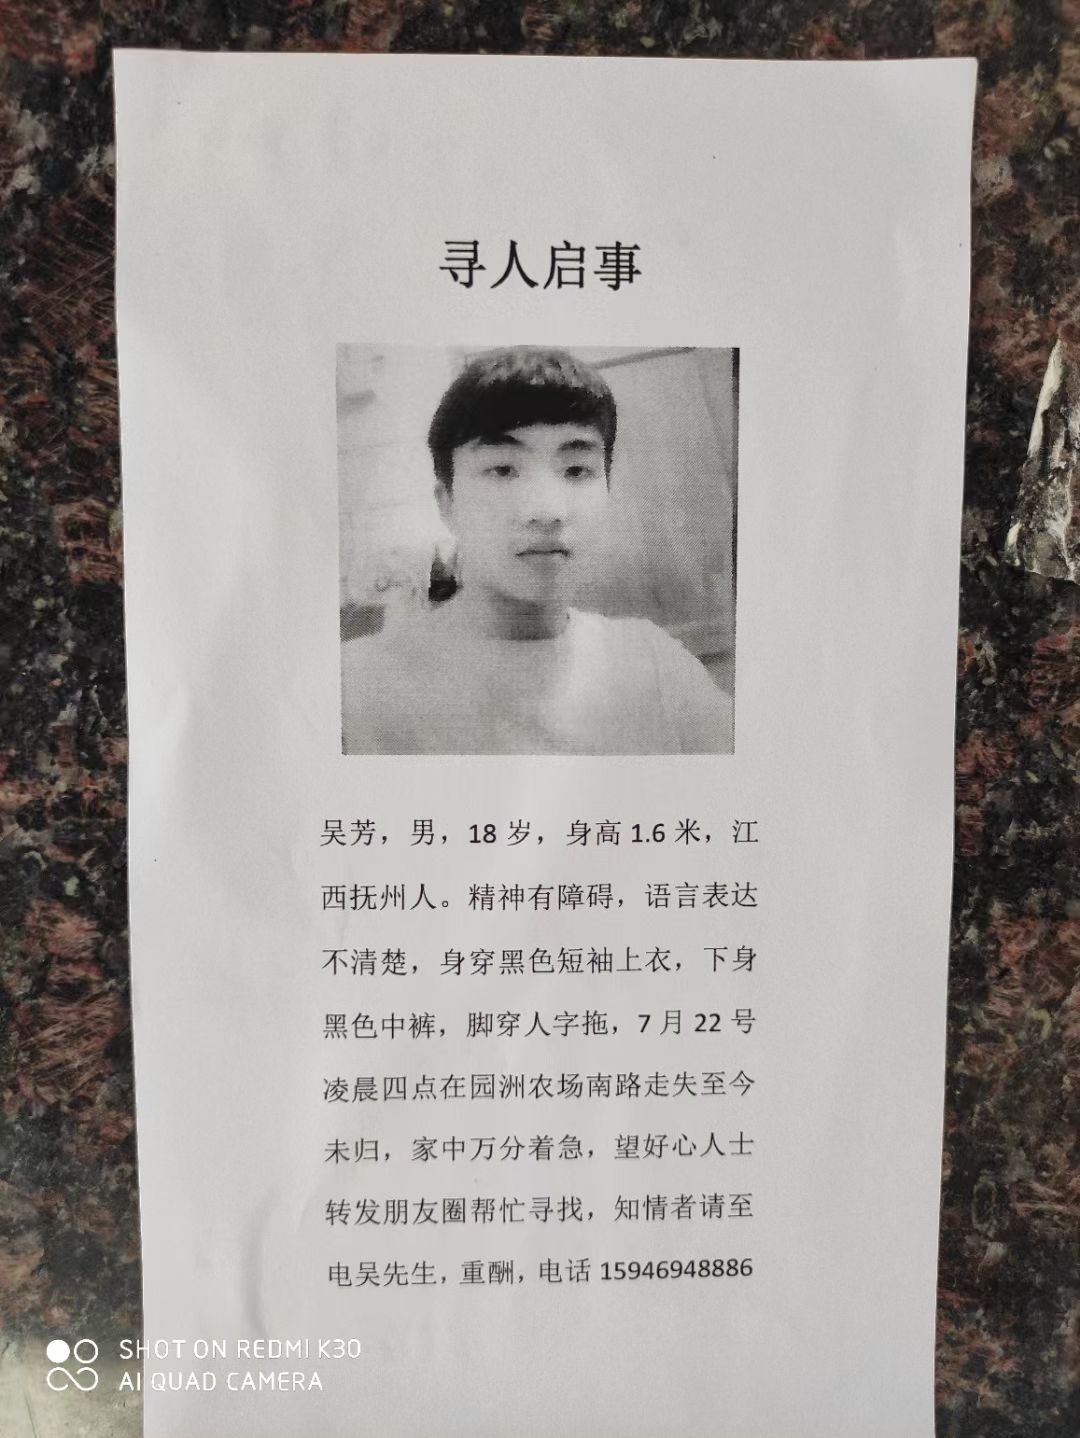 寻人启事
吴芳，男，18 岁，身高 1.6 米，江
西抚州人。精神有障碍，语言表达
不清楚，身穿黑色短袖上衣，下身
黑色中裤，脚穿人字拖，7 月 22 号
凌晨四点在园洲农场南路走失至今
未归，家中万分着急，望好心人士
转发朋友圈帮忙寻找，知情者请至
电吴先生，重酬，电话 15946948886
SHOT ON REDMI K30
AI QUAD CAMERA